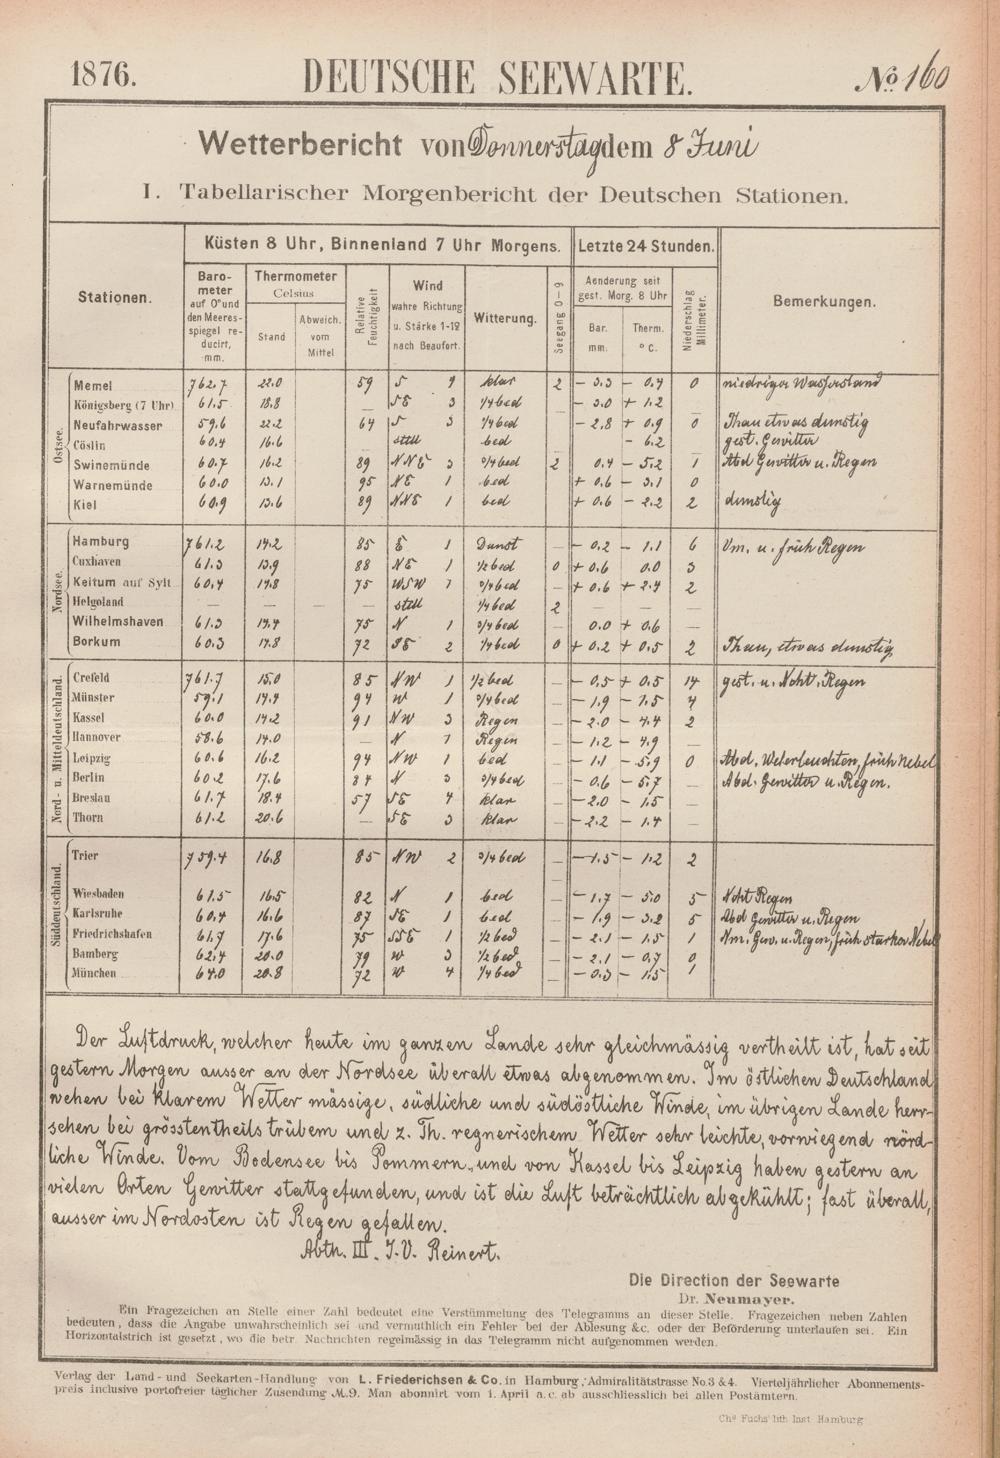 1876. DEUTSCHE SEEWARTE. No 160
Wetterbericht von Donnerstag dem 8 Juni
I. Tabellarischer Morgenbericht der Deutschen Stationen.
Stationen.
Küsten 8 Uhr, Binnenland 7 Uhr Morgens.
Letzte 24 Stunden.
Bemerkungen.
Barometer auf 0° und den Meeresspiegel reducirt, mm.
Thermometer Celsius
Stand
Abweich. vom Mittel
Relative Feuchtigkeit
Wind wahre Richtung u. Stärke 1-12 nach Beaufort.
Witterung.
Seegang 0-9
Aenderung seit gest. Morg. 8 Uhr
Bar. mm.
Therm. °C.
Niederschlag Millimeter.
Ostsee.
Memel 762.7 22.0 59 S klar 2 - 3.3 - 0.4 0 niedriger Wasserstand
Königsberg (7 Uhr) 61.5 18.8 — SE 3 1/4 bed - 3.0 + 1.2 —
Neufahrwasser 59.6 22.2 64 S 3 1/4 bed - 2.8 + 0.9 0 Thau etwas dunstig
Cöslin 60.4 16.6 — still bed - 6.2 gest. Gewitter
Swinemünde 60.7 16.2 89 NNE 3 3/4 bed 2 0.4 - 5.2 1 Abd Gewitter u. Regen
Warnemünde 60.0 13.1 95 NE 1 bed + 0.6 - 3.1 0
Kiel 60.9 13.6 89 NNE 1 bed + 0.6 - 2.2 2 dunstig
Nordsee.
Hamburg 761.2 14.2 85 E 1 Dunst — - 0.2 - 1.1 6 Vm. u. früh Regen
Cuxhaven 61.3 13.9 88 NE 1 1/2 bed 0 + 0.6 0.0 3
Keitum auf Sylt 60.4 14.8 75 WSW 1 3/4 bed — + 0.6 + 2.4 2
Helgoland — — — still 1/4 bed 2 — — —
Wilhelmshaven 61.3 14.4 75 N 1 3/4 bed — 0.0 + 0.6 —
Borkum 60.3 14.8 72 SE 2 1/4 bed 0 + 0.2 + 0.5 2 Thau, etwas dunstig
Nord- u. Mitteldeutschland.
Crefeld 761.7 15.0 85 NW 1 1/2 bed — - 0.5 + 0.5 14 gest. u. Ncht. Regen
Münster 59.1 14.4 94 W 1 3/4 bed — - 1.9 - 1.5 4
Kassel 60.0 14.2 91 NW 3 Regen — - 2.0 - 4.4 2
Hannover 58.6 14.0 — N 1 Regen — - 1.2 - 4.9 —
Leipzig 60.6 16.2 94 NW 1 bed — - 1.1 - 5.9 0 Abd, Weterleuchten, früh Nebel
Berlin 60.2 17.6 84 N 3 3/4 bed — - 0.6 - 5.7 — Abd. Gewitter u. Regen.
Breslau 61.7 18.4 57 SE 4 klar — - 2.0 - 1.5 —
Thorn 61.2 20.6 — SE 3 klar — - 2.2 - 1.4 —
Süddeutschland.
Trier 759.4 16.8 85 NW 2 3/4 bed — - 1.5 - 1.2 2
Wiesbaden 61.5 16.5 82 N 1 bed — - 1.7 - 5.0 5 Ncht Regen
Karlsruhe 60.4 16.6 87 SE 1 bed — - 1.9 - 3.2 5 Abd Gewitter u. Regen
Friedrichshafen 61.7 17.6 75 SSE 1 1/2 bed — - 2.1 - 1.5 1 Nm. Gew. u. Regen, früh starker Nebel
Bamberg 62.4 20.0 79 W 3 1/2 bed — - 2.1 - 0.7 0
München 64.0 20.8 72 W 4 1/4 bed — - 0.3 - 1.5 1
Der Luftdruck, welcher heute im ganzen Lande sehr gleichmässig vertheilt ist, hat seit
gestern Morgen ausser an der Nordsee überall etwas abgenommen. Im östlichen Deutschland
wehen bei klarem Wetter mässige, südliche und südöstliche Winde, im übrigen Lande herr-
schen bei grösstentheils trübem und z. Th. regnerischem Wetter sehr leichte, vorwiegend nörd-
liche Winde. Vom Bodensee bis Pommern, und von Kassel bis Leipzig haben gestern an
vielen Orten Gewitter stattgefunden, und ist die Luft beträchtlich abgekühlt; fast überall,
ausser im Nordosten ist Regen gefallen.
Abth. III. I.V. Reinert.
Die Direction der Seewarte
Dr. Neumayer.
Ein Fragezeichen an Stelle einer Zahl bedeutet eine Verstümmelung des Telegramms an dieser Stelle. Fragezeichen neben Zahlen
bedeuten, dass die Angabe unwahrscheinlich sei und vermuthlich ein Fehler bei der Ablesung &c. oder der Beförderung unterlaufen sei. Ein
Horizontalstrich ist gesetzt, wo die betr. Nachrichten regelmässig in das Telegramm nicht aufgenommen werden.
Verlag der Land- und Seekarten-Handlung von L. Friederichsen & Co. in Hamburg, Admiralitätstrasse No. 3 & 4. Vierteljährlicher Abonnements-
preis inclusive portofreier täglicher Zusendung M. 9. Man abonnirt vom 1. April a. c. ab ausschliesslich bei allen Postämtern.
Chs Fuchs' lith Inst Hamburg